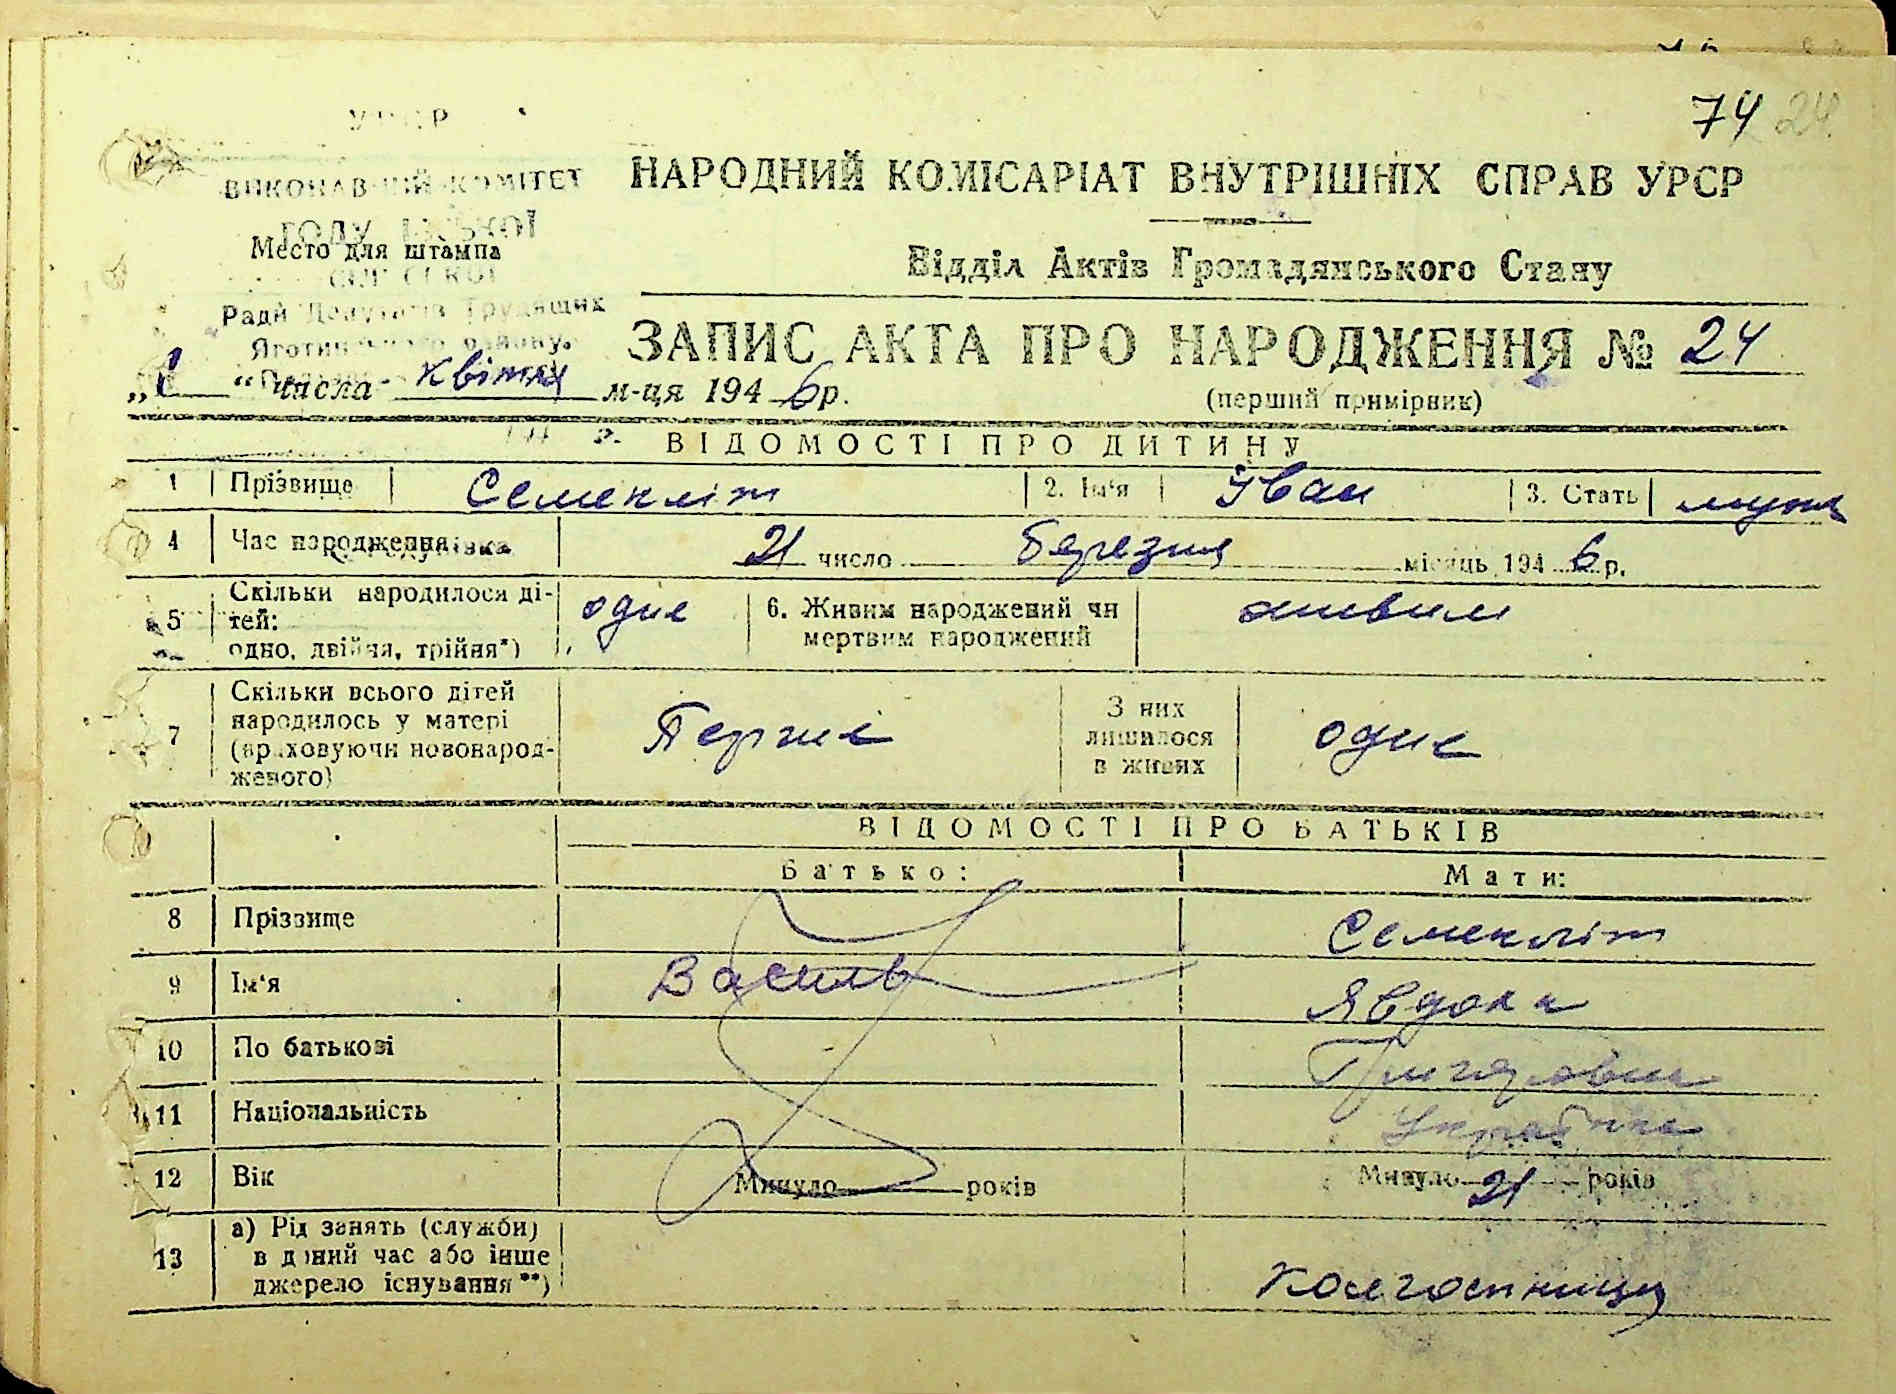 74 24
УРСР
ВИКОНАВЧИЙ КОМІТЕТ
Место для штампа
Ради Депутатів Трудящих
Яготинського району
НАРОДНИЙ КОМІСАРІАТ ВНУТРІШНІХ СПРАВ УРСР
Відділ Актів Громадянського Стану
ЗАПИС АКТА ПРО НАРОДЖЕННЯ № 24
(перший примірник)
„ “ числа квітня м-ця 1946 р.
ВІДОМОСТІ ПРО ДИТИНУ
1 Прізвище Семекліт 2. Ім'я Іван 3. Стать муж
4 Час народження 21 число березня місяць 1946 р.
5 Скільки народилося ді-
тей:
одно, двійня, трійня*)
одне
6. Живим народжений чи
мертвим народжений
живим
7 Скільки всього дітей
народилось у матері
(враховуючи новонарод-
женого)
Перше
З них
лишилося
в живих
одне
ВІДОМОСТІ ПРО БАТЬКІВ
Батько: Мати:
8 Прізвище Семекліт
9 Ім'я Василь Явдоха
10 По батькові Григоровна
11 Національність Українка
12 Вік Минуло років Минуло 21 років
13 а) Рід занять (служби)
в даний час або інше
джерело існування **)
Колгоспниця